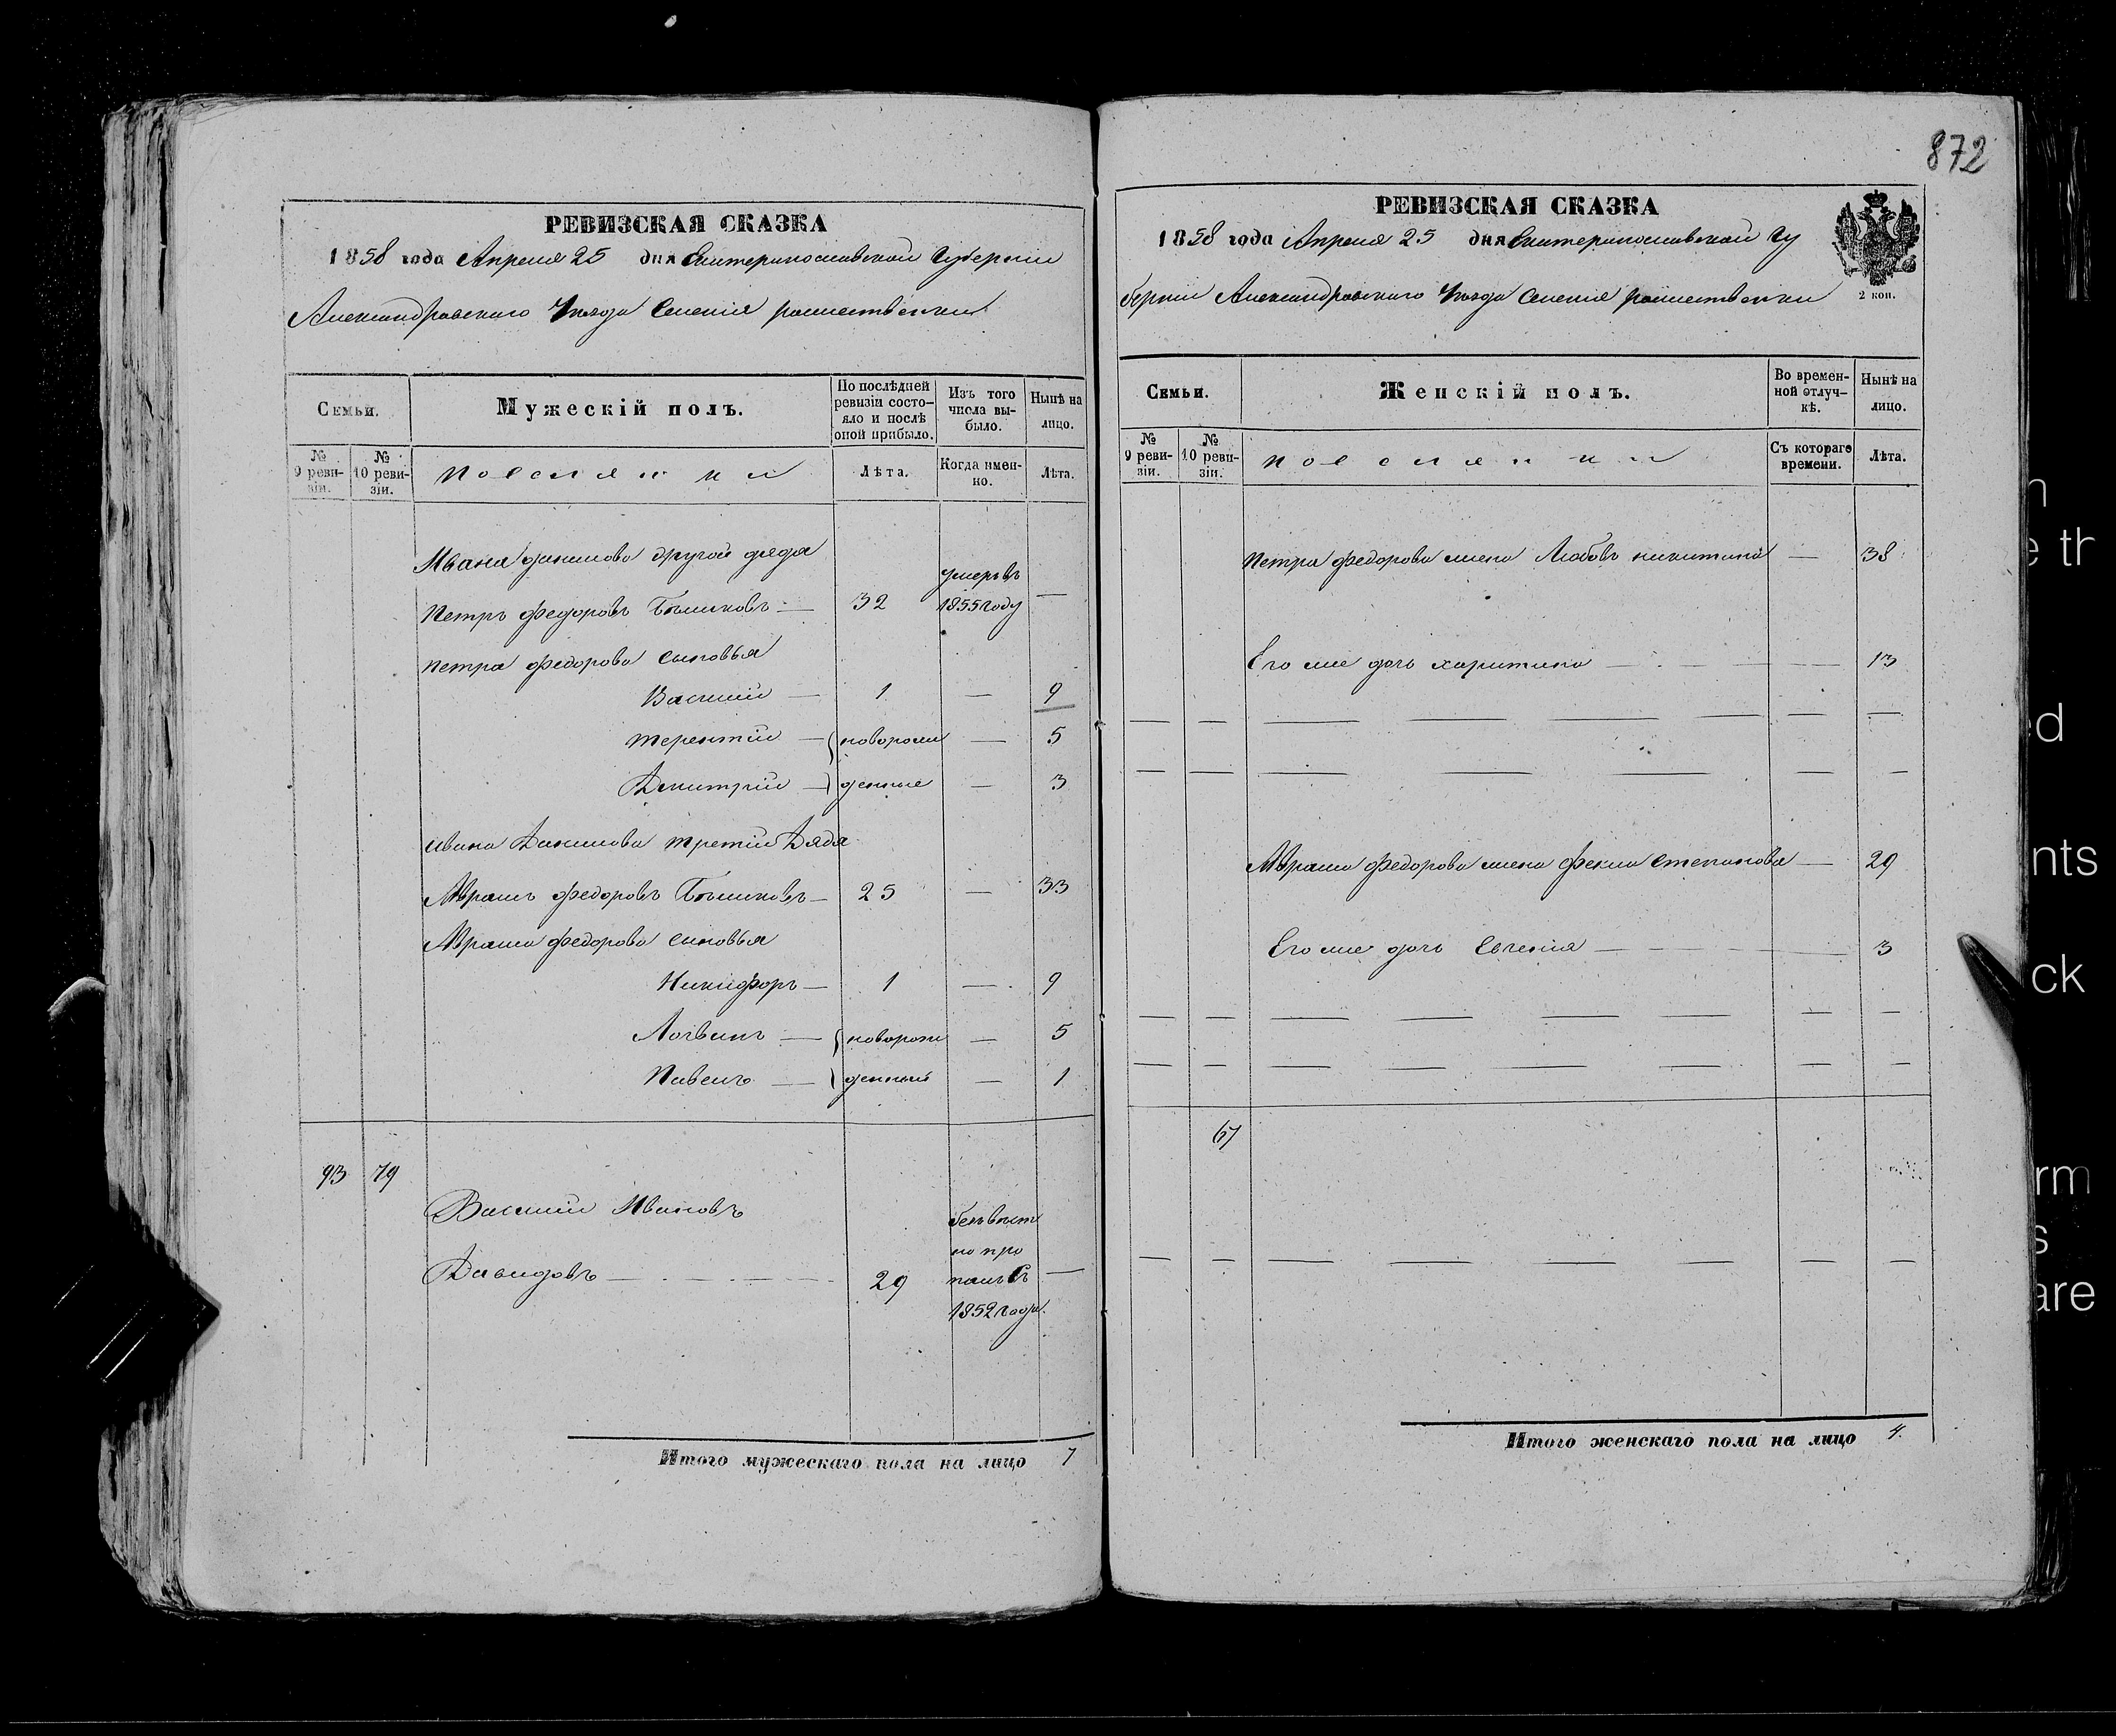 872
РЕВИЗСКАЯ СКАЗКА
1858 года Апреля 25 дня Екатеринославской Губернiи
Александровскаго Уѣзда Селенiя рошественки
Семьи.
Мужескiй полъ.
По послѣдней ревизiи состо-
яло и послѣ
оной прибыло.
Изъ того
числа вы-
было.
Нынѣ на
лицо.
№
9 реви-
зiи.
№
10 реви-
зiи.
поселянин
Лѣта.
Когда имен-
но.
Лѣта.
Ивана данилова другой дядя
умеръ въ
Петръ федоровъ 32 1855 году —
петра федорова сыновья
Василий — 1 — 9
терентий — новорож — 5
Дмитрий — денные — 3
ивана Данилова третий Дядя
Аврамъ федоровъ — 25 — 33
Аврама федорова сыновья
Никифоръ — 1 — 9
Логвинъ — новорож — 5
Павелъ — денный — 1
93 79
Василий Ивановъ
безъвѣст
но про
Давидовъ — 29 палъ съ —
1852 года.
Итого мужескаго пола на лицо 7
РЕВИЗСКАЯ СКАЗКА
1858 года Апреля 25 дня Екатеринославской Гу
бернiи Александровскаго Уѣзда Селенiя рошественки
2 коп.
Семьи.
Женскiй полъ.
Во времен-
ной отлуч-
кѣ.
Нынѣ на
лицо.
№
9 реви-
зiи.
№
10 реви-
зiи.
Съ котораго
времени.
Лѣта.
Петра федорова жена Любовъ никитина — 38
Его же дочь харитина — 13
Аврама федорова жена фекла степанова — 29
Его же дочь Евгенiя — 3
67
Итого женскаго пола на лицо 4.